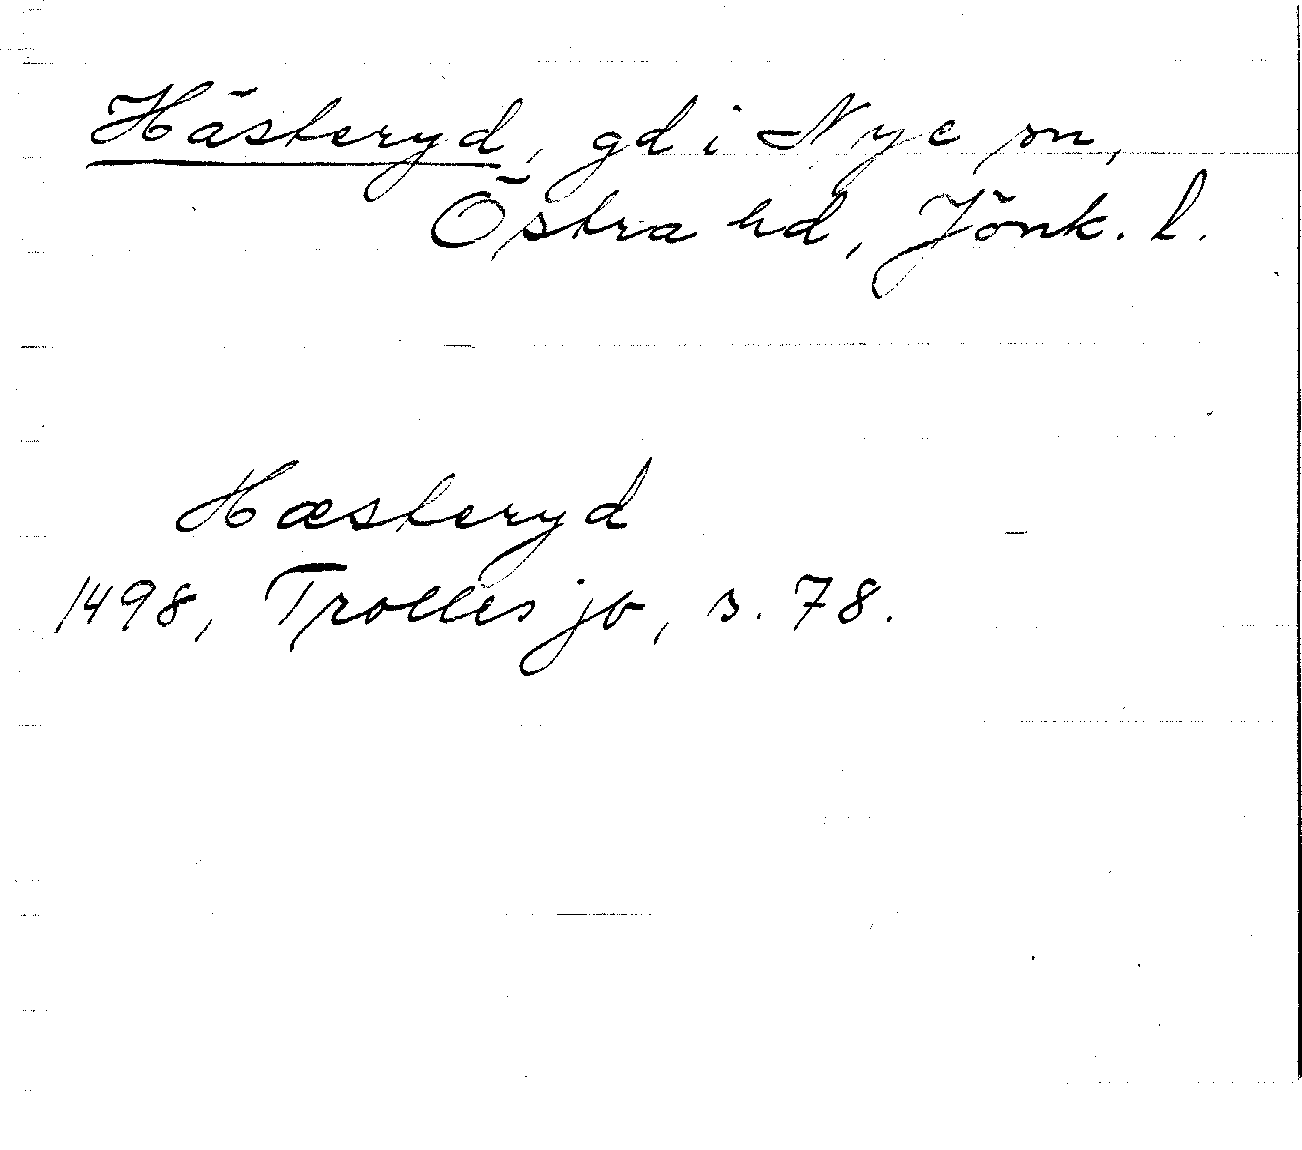 Hästeryd, gd i Nye sn,
Östra hd, Jönk. l.
Hæsteryd
1498, Trolles jb, s. 78.